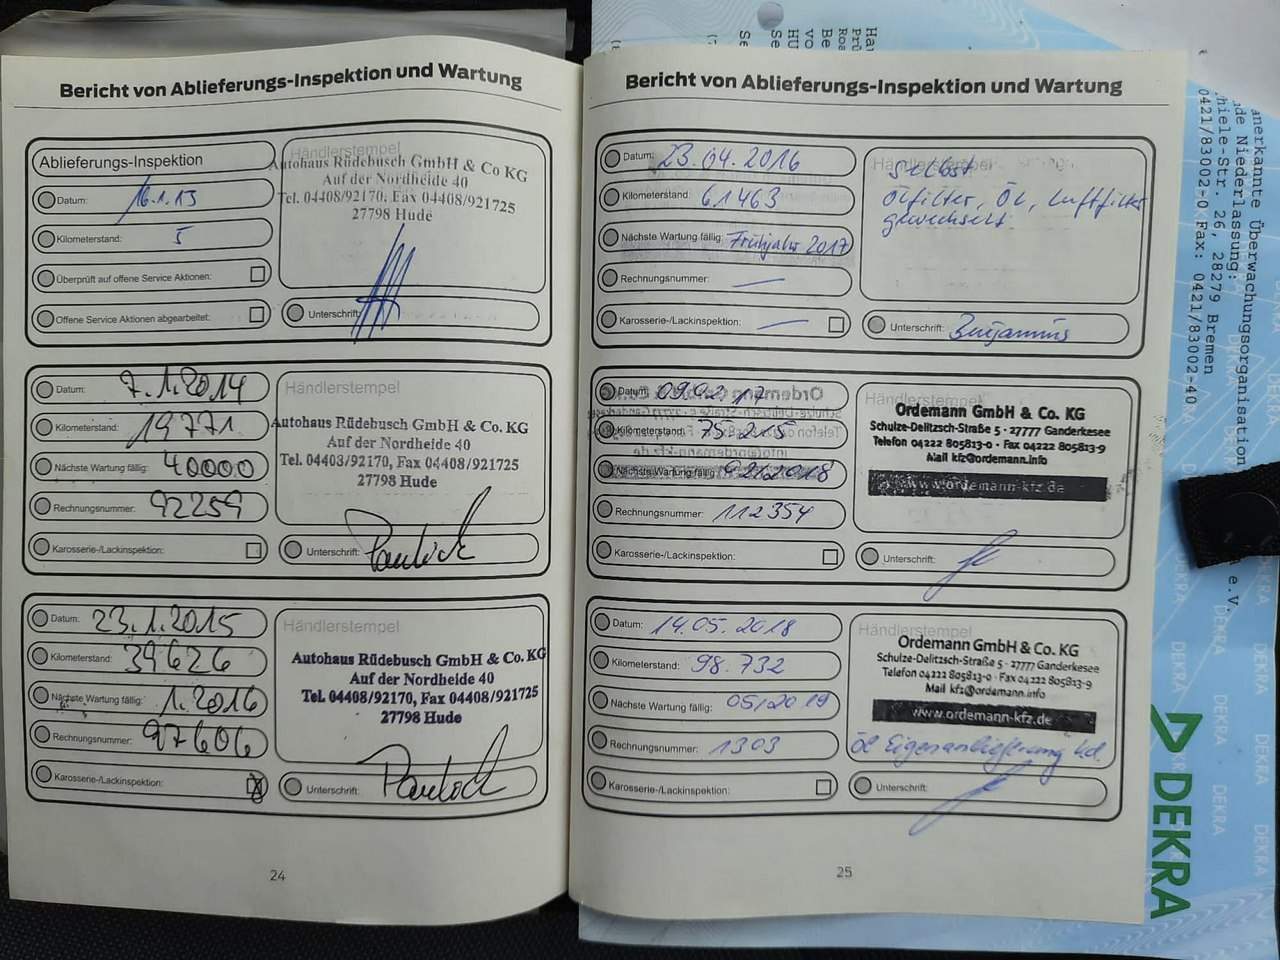 Bericht von Ablieferungs-Inspektion und Wartung
Ablieferungs-Inspektion
Datum: 16.1.13
Kilometerstand: 5
Überprüft auf offene Service Aktionen:
Offene Service Aktionen abgearbeitet:
Händlerstempel
Autohaus Rüdebusch GmbH & Co KG
Auf der Nordheide 40
Tel. 04408/92170, Fax 04408/921725
27798 Hude
Unterschrift:
Datum: 7.1.2014
Kilometerstand: 19771
Nächste Wartung fällig: 40000
Rechnungsnummer: 92259
Karosserie-/Lackinspektion:
Händlerstempel
Autohaus Rüdebusch GmbH & Co. KG
Auf der Nordheide 40
Tel. 04408/92170, Fax 04408/921725
27798 Hude
Unterschrift:
Datum: 23.1.2015
Kilometerstand: 39626
Nächste Wartung fällig: 1.2016
Rechnungsnummer: 97606
Karosserie-/Lackinspektion: X
Händlerstempel
Autohaus Rüdebusch GmbH & Co. KG
Auf der Nordheide 40
Tel. 04408/92170, Fax 04408/921725
27798 Hude
Unterschrift:
24
Bericht von Ablieferungs-Inspektion und Wartung
Datum: 23.04.2016
Kilometerstand: 61463
Nächste Wartung fällig: Frühjahr 2017
Rechnungsnummer: —
Karosserie-/Lackinspektion: —
Händlerstempel
Selbst
Ölfilter, Öl, Luftfilter
gewechselt
Unterschrift:
Datum: 09.02.17
Kilometerstand: 75.215
Nächste Wartung fällig: 02/2018
Rechnungsnummer: 112354
Karosserie-/Lackinspektion:
Händlerstempel
Ordemann GmbH & Co. KG
Schulze-Delitzsch-Straße 5 · 27777 Ganderkesee
Telefon 04222 805813-0 · Fax 04222 805813-9
Mail kfz@ordemann.info
www.ordemann-kfz.de
Unterschrift:
Datum: 14.05.2018
Kilometerstand: 98.732
Nächste Wartung fällig: 05/2019
Rechnungsnummer: 1303
Karosserie-/Lackinspektion:
Händlerstempel
Ordemann GmbH & Co. KG
Schulze-Delitzsch-Straße 5 · 27777 Ganderkesee
Telefon 04222 805813-0 · Fax 04222 805813-9
Mail kfz@ordemann.info
www.ordemann-kfz.de
Öl Eigenanlieferung Kd.
Unterschrift:
25
anerkannte Überwachungsorganisation
nde Niederlassung:
hiele-Str. 26, 28279 Bremen
0421/83002-0 Fax: 0421/83002-40
e.V.
DEKRA